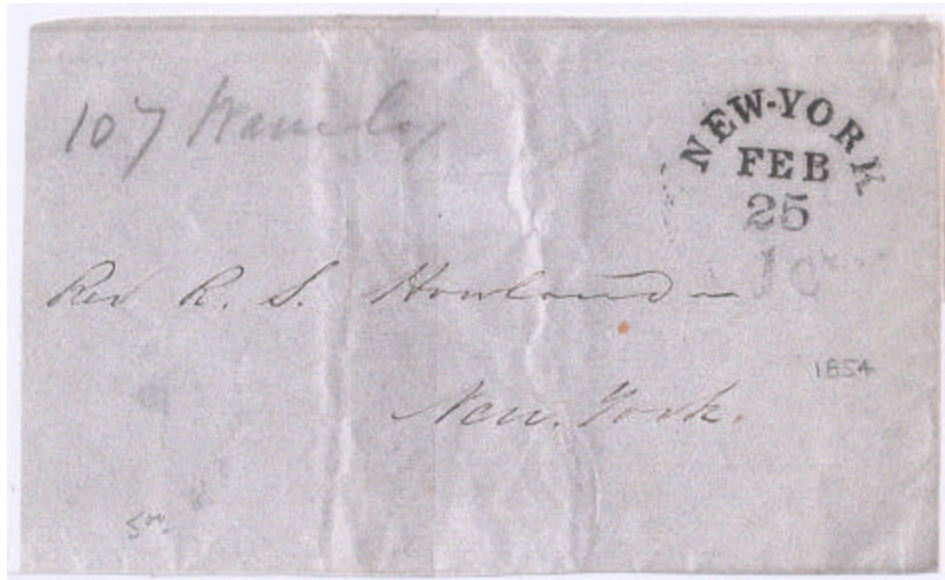 107 Waverley
NEW-YORK
FEB
25
1 ct
Rev R. S. Howland
1854
New. York.
5 00